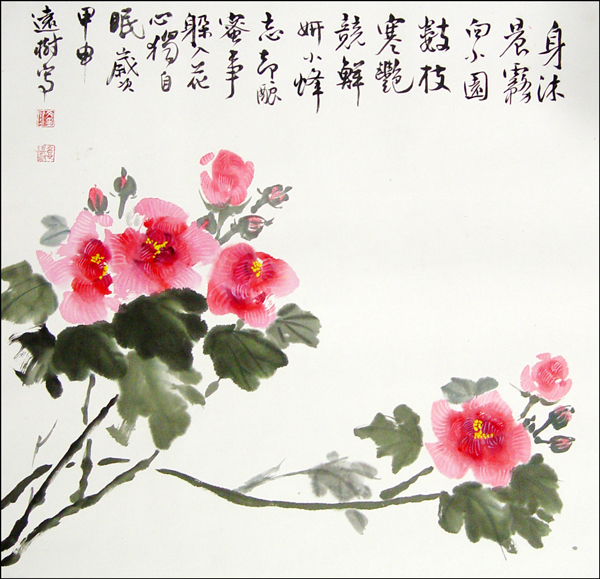 身沐
晨霧
向小園
數枝
寒艷
競鮮
妍小蜂
忘却釀
蜜事
躲入花
心獨自
眠歲次
甲申
遠樹寫